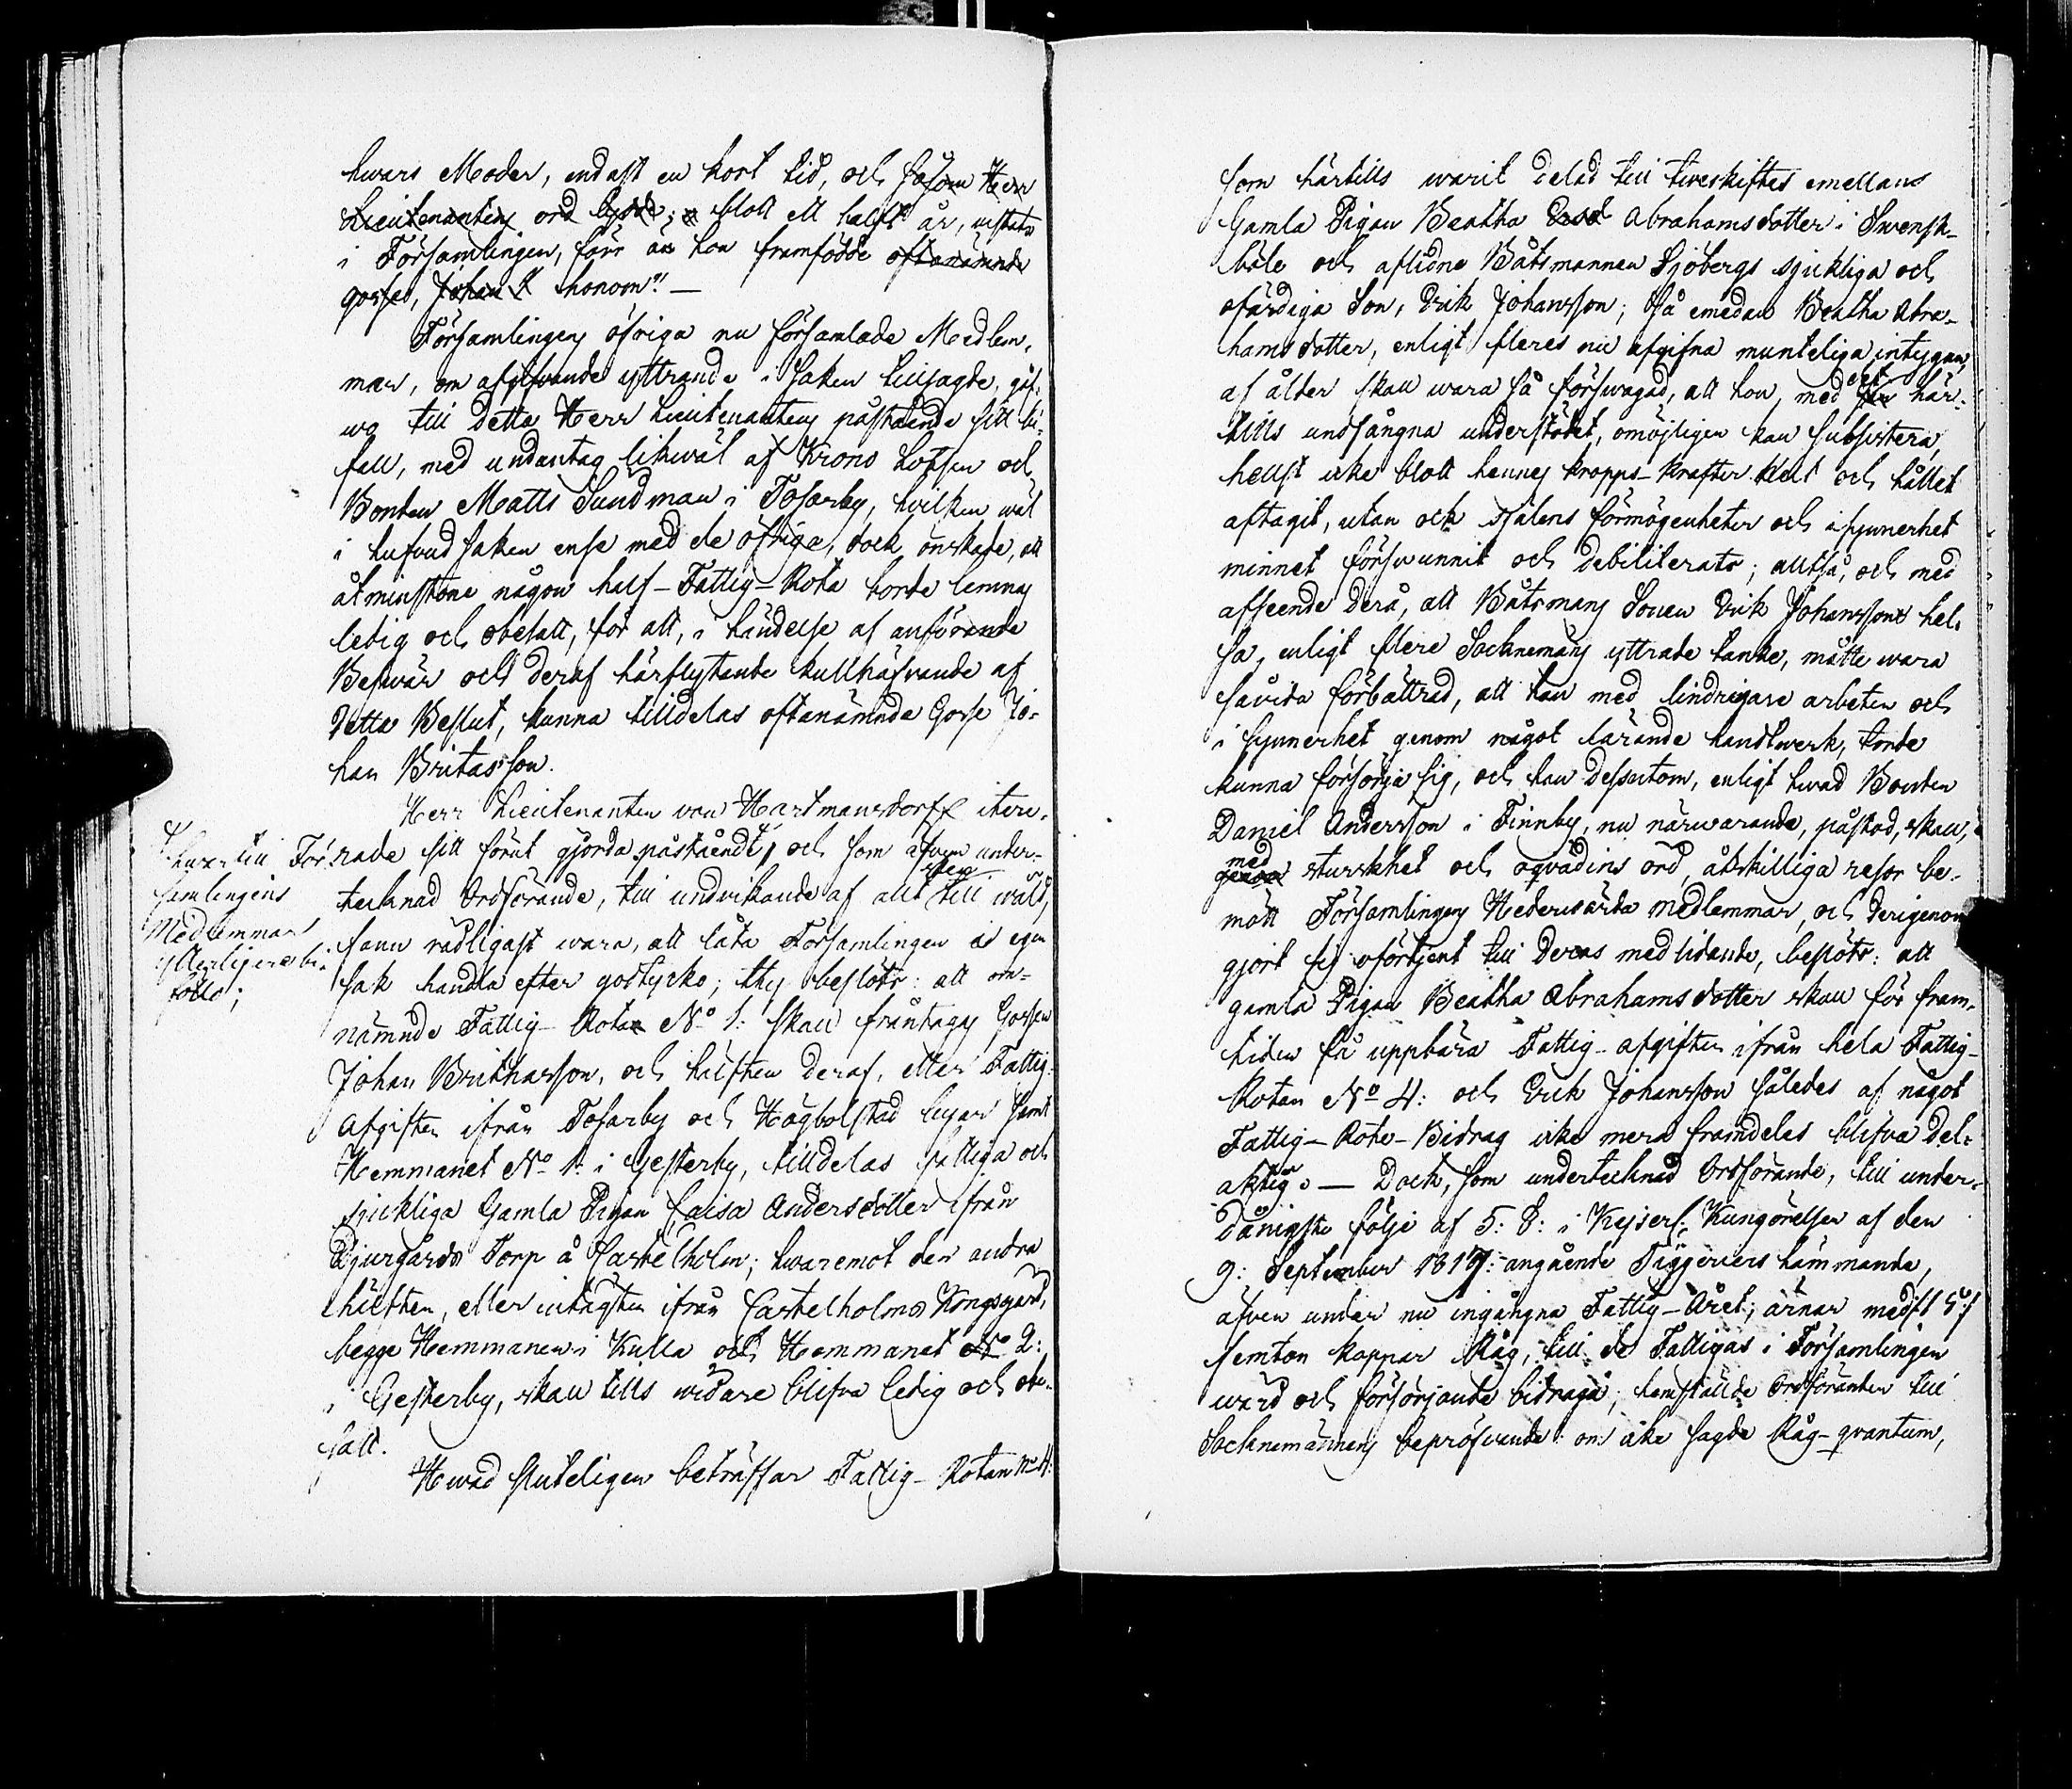 hwars Moder, endast en kort tid, och såsom Herr
Lieutenantens ord lydde; blott ett halft år, vistats
i Församlingen, förr än hon framfödde oftanämnde
gosse, Johan honom". —
Församlingens öfriga nu församlade Medlem-
mar, om afgifvande yttrande i saken tillsagde, gåf-
wo till detta Herr Lieutenantens påstående sitt bi-
fall, med undantag likwäl af Krono Lotsen och
Bonden Matts Sundman i Tosarby, hvilken wäl
i hufvud saken ense med de öfriga, dock önskade, att
åtminstone någon half-Fattig-Rota borde lemnas
ledig och obesatt, för att, i händelse af anförande
Beswär och deraf härflytande kullhäfvande af
detta Beslut, kunna tilldelas oftanämnde Gosse Jo-
han Britasson.
Herr Lieutenanten von Hartmansdorff itere-
rade sitt förut gjorda påstående, och som äfven under-
hwartill För-
samlingens
Medlemmar
ytterligare bi-
föllo;
tecknad Ordförande, till undvikande af allt sken till wåld,
fann rådligast wara, att låta Församlingen i egen
sak handla efter godtycke; thy beslöts: att om-
nämnde Fattig-Rota No 1: skall fråntagas Gossen
Johan Brithasson, och hälften deraf, eller Fattig-
Afgiften ifrån Tosarby och Högbolstad byar samt
Hemmanet No 1: i Gesterby, tilldelas fattiga och
sjukliga Gamla Pigan Caisa Andersdotter ifrån
Djurgårds Torp å Castelholm; hwaremot den andra
hälften, eller intägten ifrån Castelholms Kongsgård,
begge Hemmanen i Kulla och Hemmanet No 2:
i Gesterby, skall tills widare blifva ledig och obe-
satt.
Hwad sluteligen beträffar Fattig-Rotan No 4:
som härtills warit delad till tweskiftes emellan
Gamla Pigan Beatha Abrahamsdotter i Swensk-
böle och aflidne Båtsmannen Sjöbergs sjukliga och
ofärdiga Son, Erik Johansson; Så emedan Beatha Abra-
hamsdotter, enligt fleres nu afgifna munteliga intygan,
af ålder skall wara så förswagad, att hon, med det här-
tills undfångna understödet, omöjligen kan subsistera,
helst icke blott hennes kropps-krafter helt och hållet
aftagit, utan ock själens förmögenheter och i synnerhet
minnet förswunnit och debiliterats; alltså, och med
afseende derå, att Båtsmans Sonen Erik Johanssons hel-
sa, enligt flere Socknemäns yttrade tanke, måtte wara
såvida förbättrad, att han med lindrigare arbeten och
i synnerhet genom något lärande handtwerk, torde
kunna försörja sig, och han dessutom, enligt hwad Bonden
Daniel Andersson i Finnby, nu närwarande, påstod, skall,
med sturskhet och oqvädins ord, åtskilliga resor be-
mött Församlingens Hederwärda medlemmar, och derigenom
gjort sig oförtjent till deras medlidande, beslöts: att
gamla Pigan Beatha Abrahamsdotter skall för fram-
tiden få uppbära Fattig-afgiften ifrån hela Fattig-
Rotan No 4: och Erik Johansson således af något
Fattig-Rote-Bidrag icke mera framdeles blifva del-
aktig. — Dock, som undertecknad Ordförande, till under-
dånigste följe af 5: §: i Kejserl. Kungörelsen af den
9: September 1817: angående Tiggeriers hämmande,
äfven under nu ingångna Fattig-Året, ärnar med // 15 //
femton kappar Råg, till de Fattigas i Församlingen
wård och försörjande bidraga; hemställde Ordföranden till
Socknemännens bepröfvande: om icke sagde Råg-qvantum,